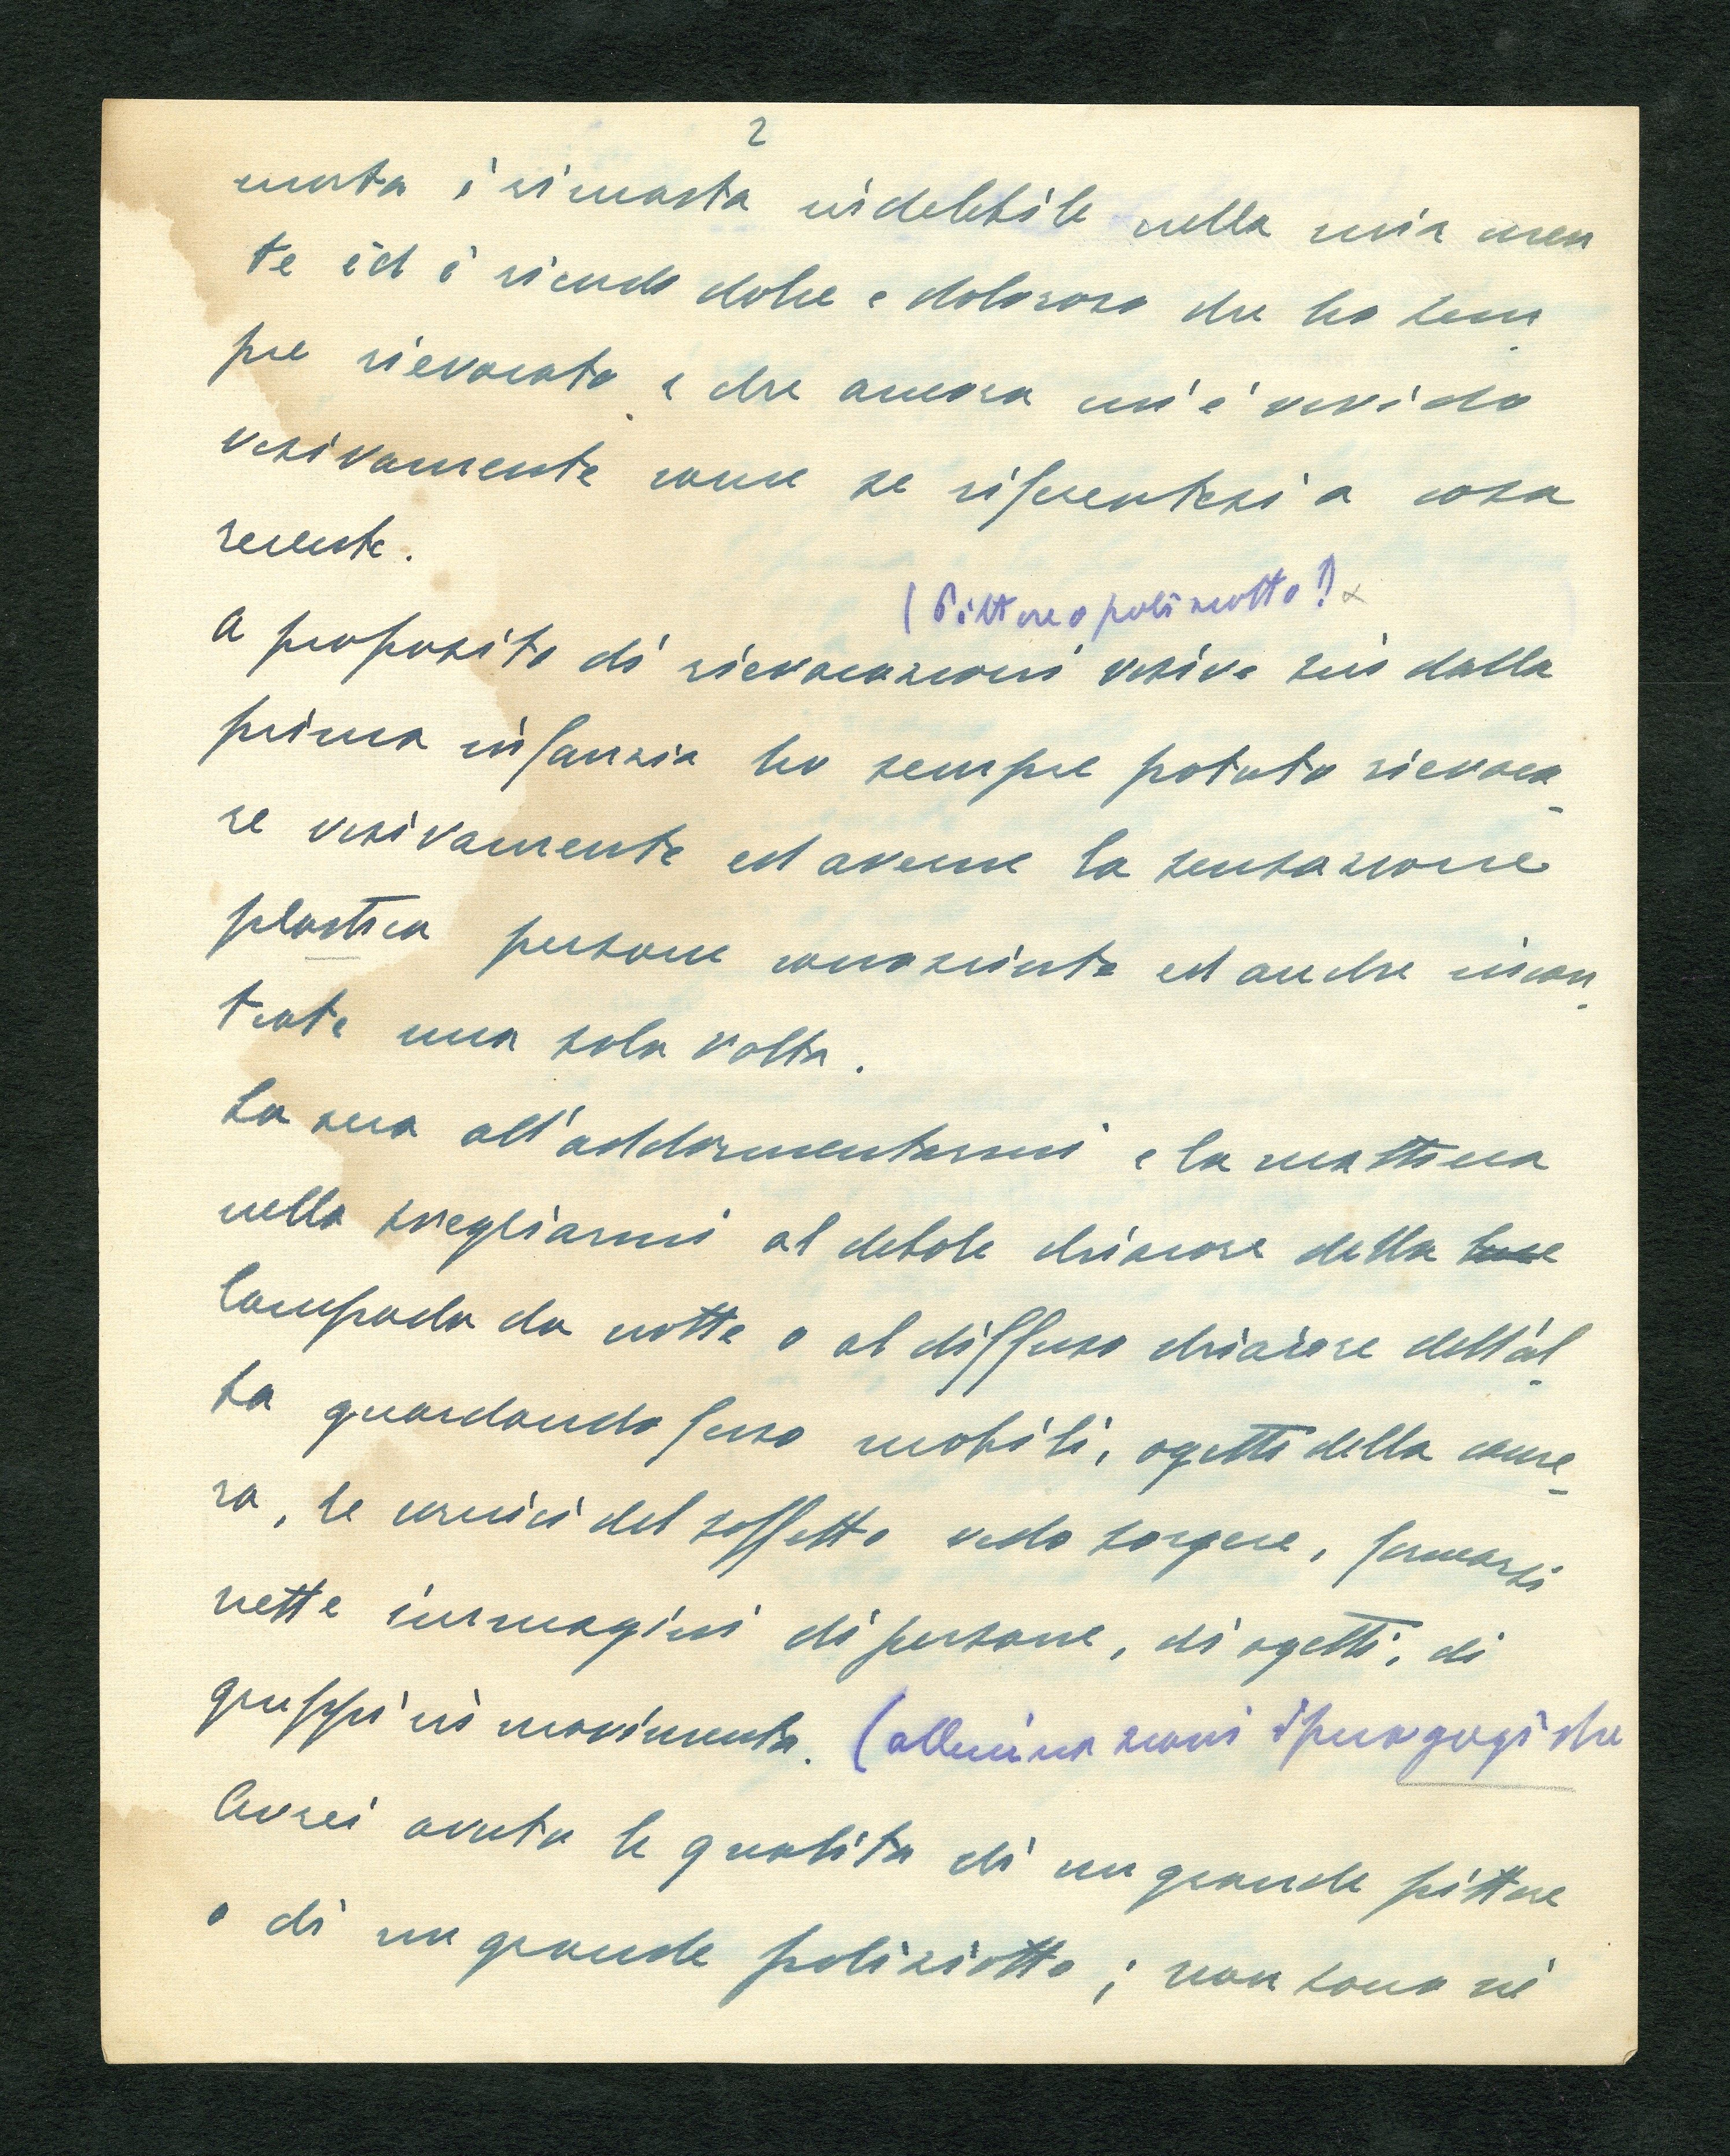 2
morta è rimasta indelebile nella mia men
te ed è ricordo dolce e doloroso che ho sem
pre rievocato e che ancora mi è vivido
visivamente come se riferentesi a cosa
recente.
(Pittore o poliziotto?)
A proposito di rievocazioni visive sin dalla
prima infanzia ho sempre potuto rievoca-
re visivamente ed averne la sensazione
plastica persone conosciute ed anche incon
trate una sola volta.
La sera all'addormentarmi e la mattina
nello svegliarmi al debole chiarore della luce
lampada da notte o al diffuso chiarore dell'al
ba guardando fuso mobili, ogetti della came-
ra, le cornici del soffitto vedo sorgere, formarsi
nette immagini di persone, di ogetti, di
gruppi in movimento. (allucinazioni ipnagogiche
Avrei avuto le qualita di un grande pittore
o di un grande poliziotto; non sono nè